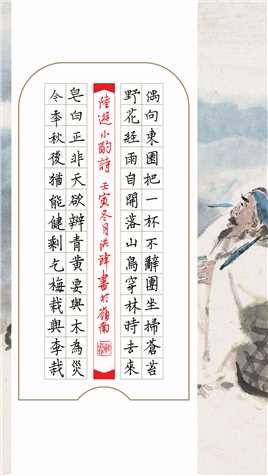 偶向東園把一杯不辭團坐掃蒼苔
野花經雨自開落山鳥穿林時去來
陸遊小酌詩 壬寅冬月洪鋒書於嶺南
皂白正非天欲辨青黃要與木為災
今秊秋後猶能健剩乞梅栽與李栽